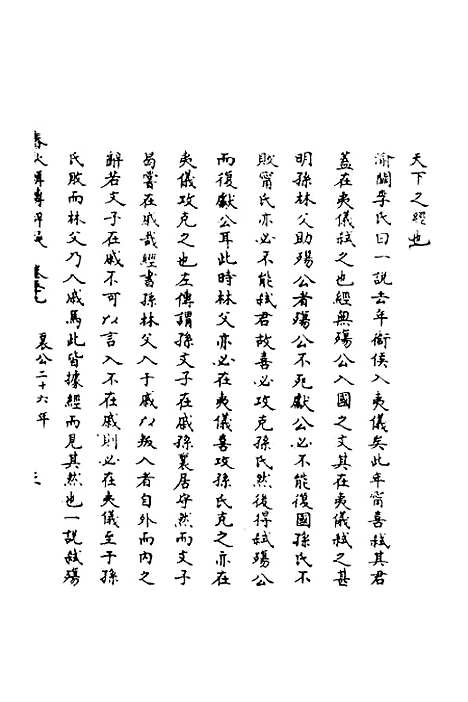 天下之經也
渝關李氏曰一說去年衛侯入夷儀矣此年甯喜弒其君
蓋在夷儀弒之也經無殤公入國之文其在夷儀弒之甚
明孫林父助殤公者殤公不死獻公必不能復國孫氏不
敗甯氏亦必不能弒君故喜必攻克孫氏然後得弒殤公
而復獻公耳此時林父亦必在夷儀喜攻孫氏克之亦在
夷儀攻克之也左傳謂孫文子在戚孫襄居守然而文子
曷嘗在戚哉經書孫林父入于戚以叛入者自外而內之
辭若文子在戚不可以言入不在戚則必在夷儀至于孫
氏敗而林父乃入戚焉此皆據經而見其然也一說弒殤
襄公二十六年